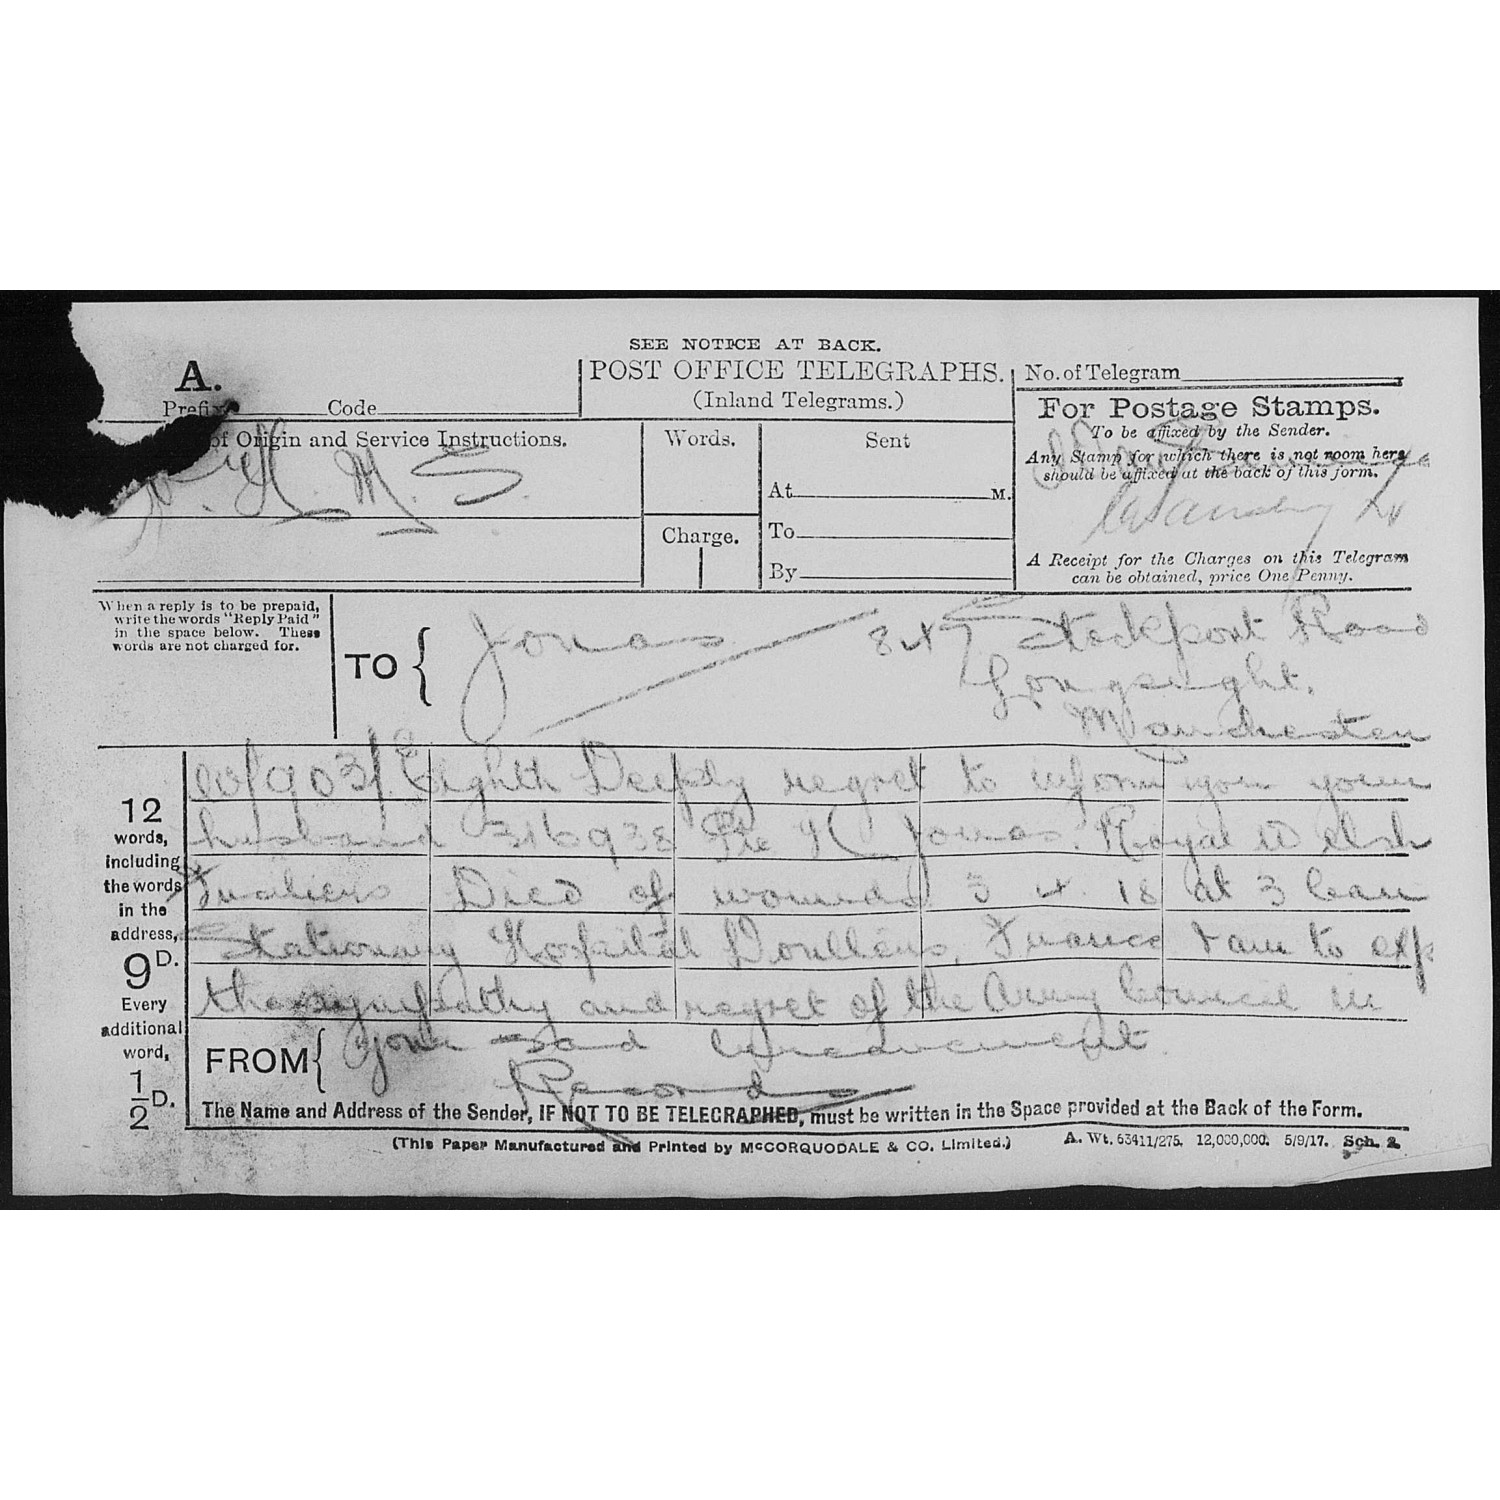 SEE NOTICE AT BACK.
A.
POST OFFICE TELEGRAPHS.
(Inland Telegrams.)
No. of Telegram
Prefix Code
For Postage Stamps.
To be affixed by the Sender.
Any Stamp for which there is not room here
should be affixed at the back of this form.
A Receipt for the Charges on this Telegram
can be obtained, price One Penny.
of Origin and Service Instructions.
H. M. S.
Words.
Charge.
Sent
At M.
To
By
When a reply is to be prepaid,
write the words "Reply Paid"
in the space below. These
words are not charged for.
TO
Jonas
847 Stockport Road
Longsight,
Manchester
12
words,
including
the words
in the
address,
9D.
Every
additional
word,
1/2 D.
Eighth Deeply regret to inform you your
husband 316938 Pte Jonas. Royal Welsh
Fusiliers Died of wounds 3 4. 18 at 3 Can
Stationary Hospital Doullens, France I am to exp
the sympathy and regret of the Army Council in
your sad bereavement
FROM
Records
The Name and Address of the Sender, IF NOT TO BE TELEGRAPHED, must be written in the Space provided at the Back of the Form.
(This Paper Manufactured and Printed by McCORQUODALE & CO. Limited.)
A. Wt. 63411/275. 12,000,000. 5/9/17. Sch. 2.